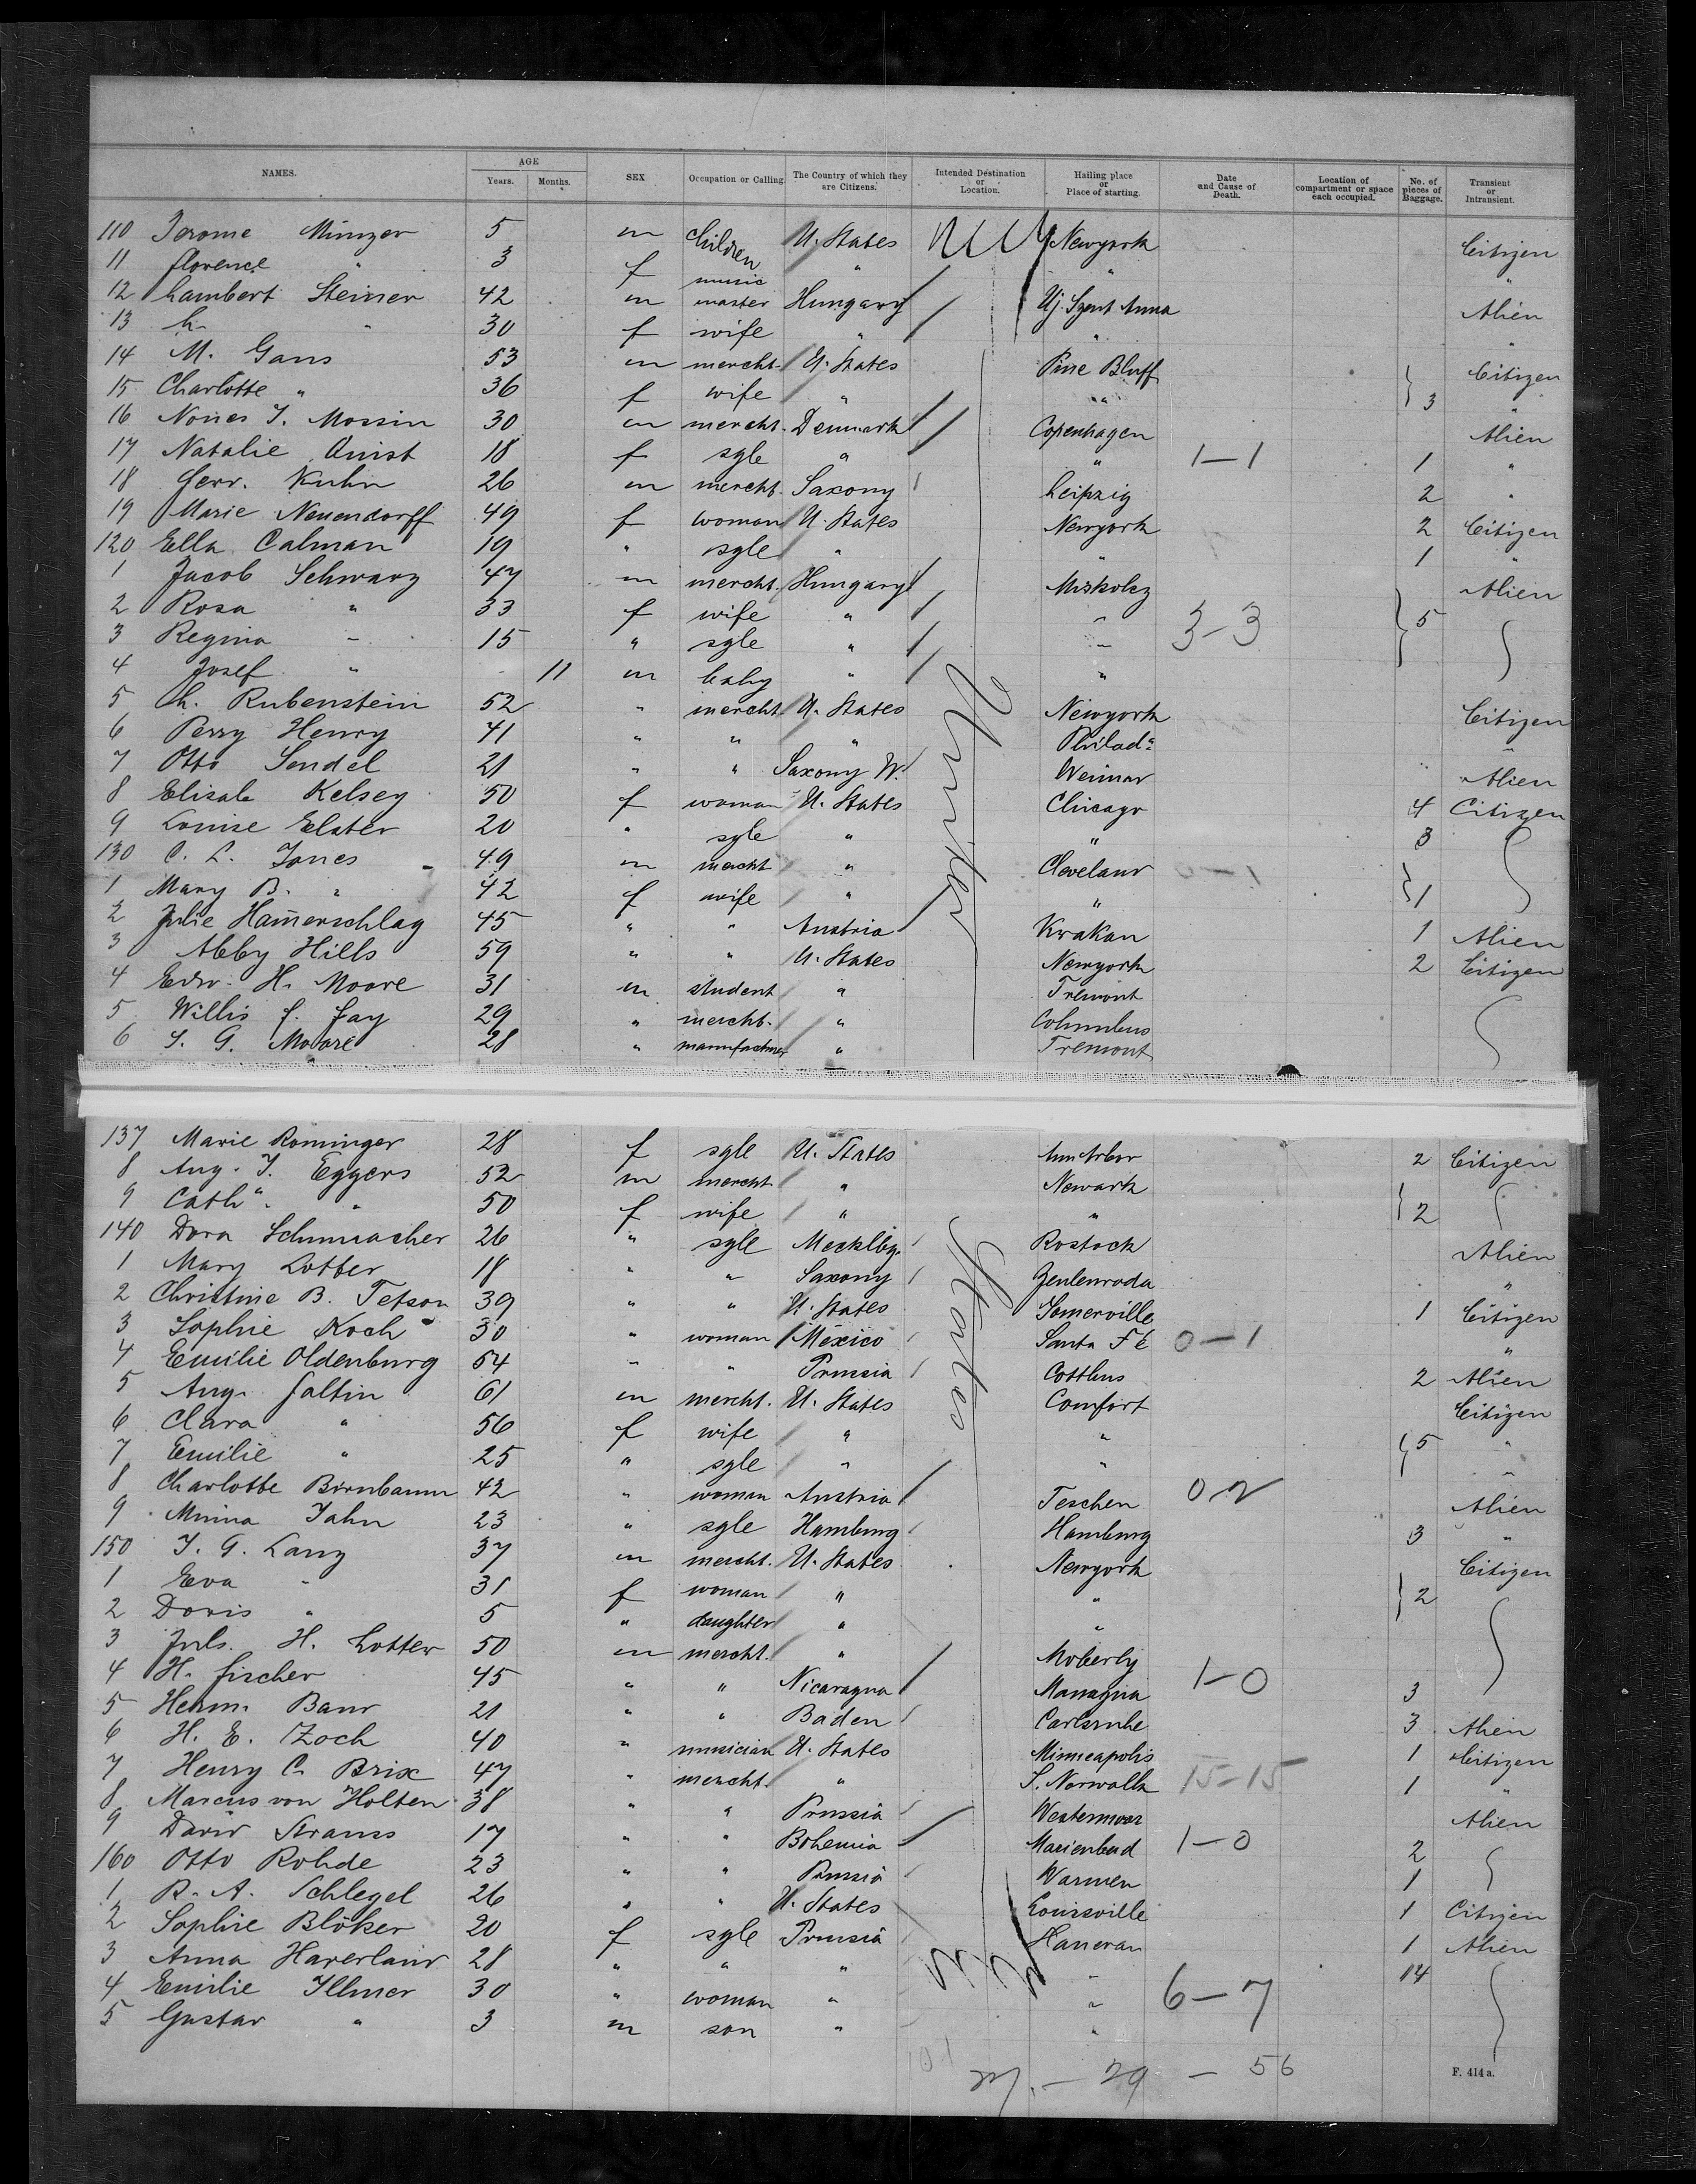 NAMES. AGE Years. Months. SEX Occupation or Calling. The Country of which they are Citizens. Intended Destination or Location. Hailing place or Place of starting. Date and Cause of Death. Location of compartment or space each occupied. No. of pieces of Baggage. Transient or Intransient.
110 Jerome Minzer 5 m Children U. States NY Newyork Citizen
11 Florence " 3 f " " "
12 Lambert Steiner 42 m music master Hungary Uj. Szent Anna Alien
13 h. " 30 f wife " " "
14 M. Gans 53 m mercht. U. States Pine Bluff Citizen
15 Charlotte " 36 f wife " " 3 "
16 J. Mossin 30 m mercht. Denmark Copenhagen Alien
17 Natalie Quist 18 f sgle " " 1-1 1 "
18 Kuhn 26 m mercht. Saxony Leipzig 2 "
19 Marie Neuendorff 49 f woman U. States Newyork 2 Citizen
120 Ella Calman 19 " sgle " " 1 "
1 Jacob Schwarz 47 m mercht. Hungary Miskolcz Alien
2 Rosa " 33 f wife " " 3-3 5
3 Regina " 15 " sgle " "
4 Josef " 11 m baby " "
5 Rubenstein 52 " mercht U. States Newyork Citizen
6 Perry Henry 41 " " " Philada "
7 Otto Sendel 21 " " Saxony W. Weimar Alien
8 Elisab Kelsey 50 f woman U. States Chicago 4 Citizen
9 Louise Elster 20 " sgle " " 3
130 C. L. Jones 49 m mercht " Cleveland 0-1
1 Mary B. " 42 f wife " " 1
2 Julie Ham̄erschlag 45 " " Austria Krakau 1 Alien
3 Abby Hills 59 " " U. States Newyork 2 Citizen
4 Edw. H. Moore 31 m student " Tremont
5 Willis F. Fay 29 " mercht. " Columbus
6 S. G. Moore 28 " manufacturer " Tremont
United States
137 Marie Rominger 28 f sgle U. States Ann Arbor 2 Citizen
8 Aug. F. Eggers 52 m mercht " Newark
9 Cath. " 50 f wife " " 2
140 Dora Schumacher 26 " sgle Mecklbg. Rostock Alien
1 Mary Lotter 18 " " Saxony Zeulenroda "
2 Christine B. Tetson 39 " " U. States Somerville 1 Citizen
3 Sophie Koch 30 " woman Mexico Santa Fé 0-1 "
4 Emilie Oldenburg 54 " " Prussia Cottbus 2 Alien
5 Aug. Faltin 61 m mercht. U. States Comfort Citizen
6 Clara " 56 f wife " " 5 "
7 Emilie " 25 " sgle " " "
8 Charlotte Birnbaum 42 " woman Austria Teschen 0-2 Alien
9 Minna Jahn 23 " sgle Hamburg Hamburg 3 "
150 J. G. Lang 37 m mercht. U. States Newyork Citizen
1 Eva " 31 f woman " " 2
2 Doris " 5 " daughter " "
3 Juls. H. Lotter 50 m mercht. " Moberly
4 H. Fischer 45 " " Nicaragua Managua 1-0 3
5 Herm. Baur 21 " " Baden Carlsruhe 3 Alien
6 H. E. Zoch 40 " musician U. States Minneapolis 1 Citizen
7 Henry C. Brix 47 " mercht. " S. Norwalk 15-15 1 "
8 Marcus von Holten 38 " " Prussia Westermoor Alien
9 David Strauss 17 " " Bohemia Marienbad 1-0 2
160 Otto Rohde 23 " " Prussia Warmen 1
1 R. A. Schlegel 26 " " U. States Louisville 1 Citizen
2 Sophie Blöker 20 f sgle Prussia Hanerau 1 Alien
3 Anna Haverland 28 " " " " 14
4 Emilie Illmer 30 " woman " " 6-7
5 Gustav " 3 m son " "
29 - 56
F. 414 a.